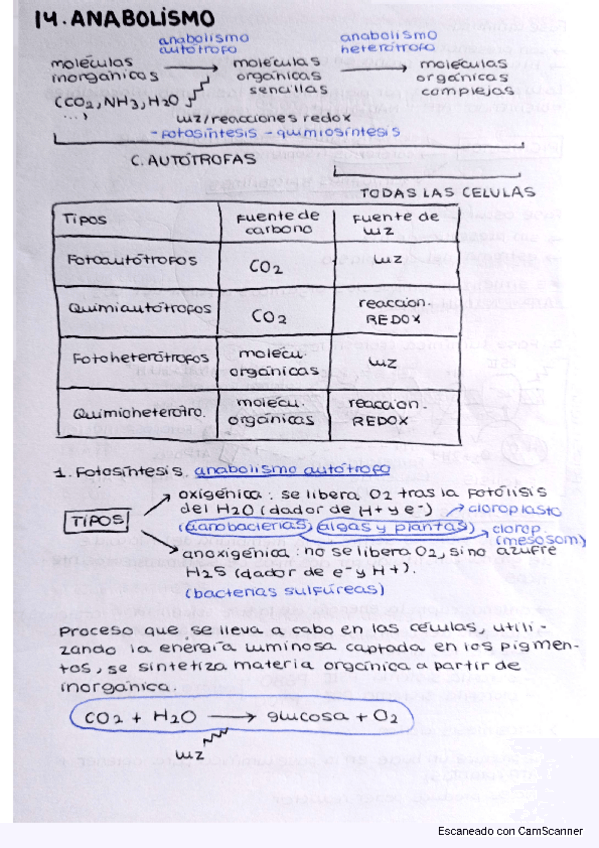 14. ANABOLISMO
anabolismo autótrofo
anabolismo heterótrofo
moléculas inorgánicas (CO2, NH3, H2O ...)
moléculas orgánicas sencillas
moléculas orgánicas complejas
luz/reacciones redox
-fotosíntesis -quimiosíntesis
C. AUTÓTROFAS
TODAS LAS CELULAS
Tipos | Fuente de carbono | Fuente de luz
Fotoautótrofos | CO2 | luz
Quimiautótrofos | CO2 | reaccion. REDOX
Fotoheterótrofos | molécu. orgánicas | luz
Quimioheterótro. | molécu. orgánicas | reaccion. REDOX
1. Fotosíntesis. anabolismo autótrofo
TIPOS
oxigénica: se libera O2 tras la fotólisis
del H2O (dador de H+ y e-) → cloroplasto
(cianobacterias, algas y plantas) → clorop.
(mesosom)
anoxigénica: no se libera O2, sino azufre
H2S (dador de e- y H+).
(bacterias sulfúreas)
Proceso que se lleva a cabo en las células, utili-
zando la energía luminosa captada en los pigmen-
tos, se sintetiza materia orgánica a partir de
inorgánica.
CO2 + H2O → glucosa + O2
luz
Escaneado con CamScanner